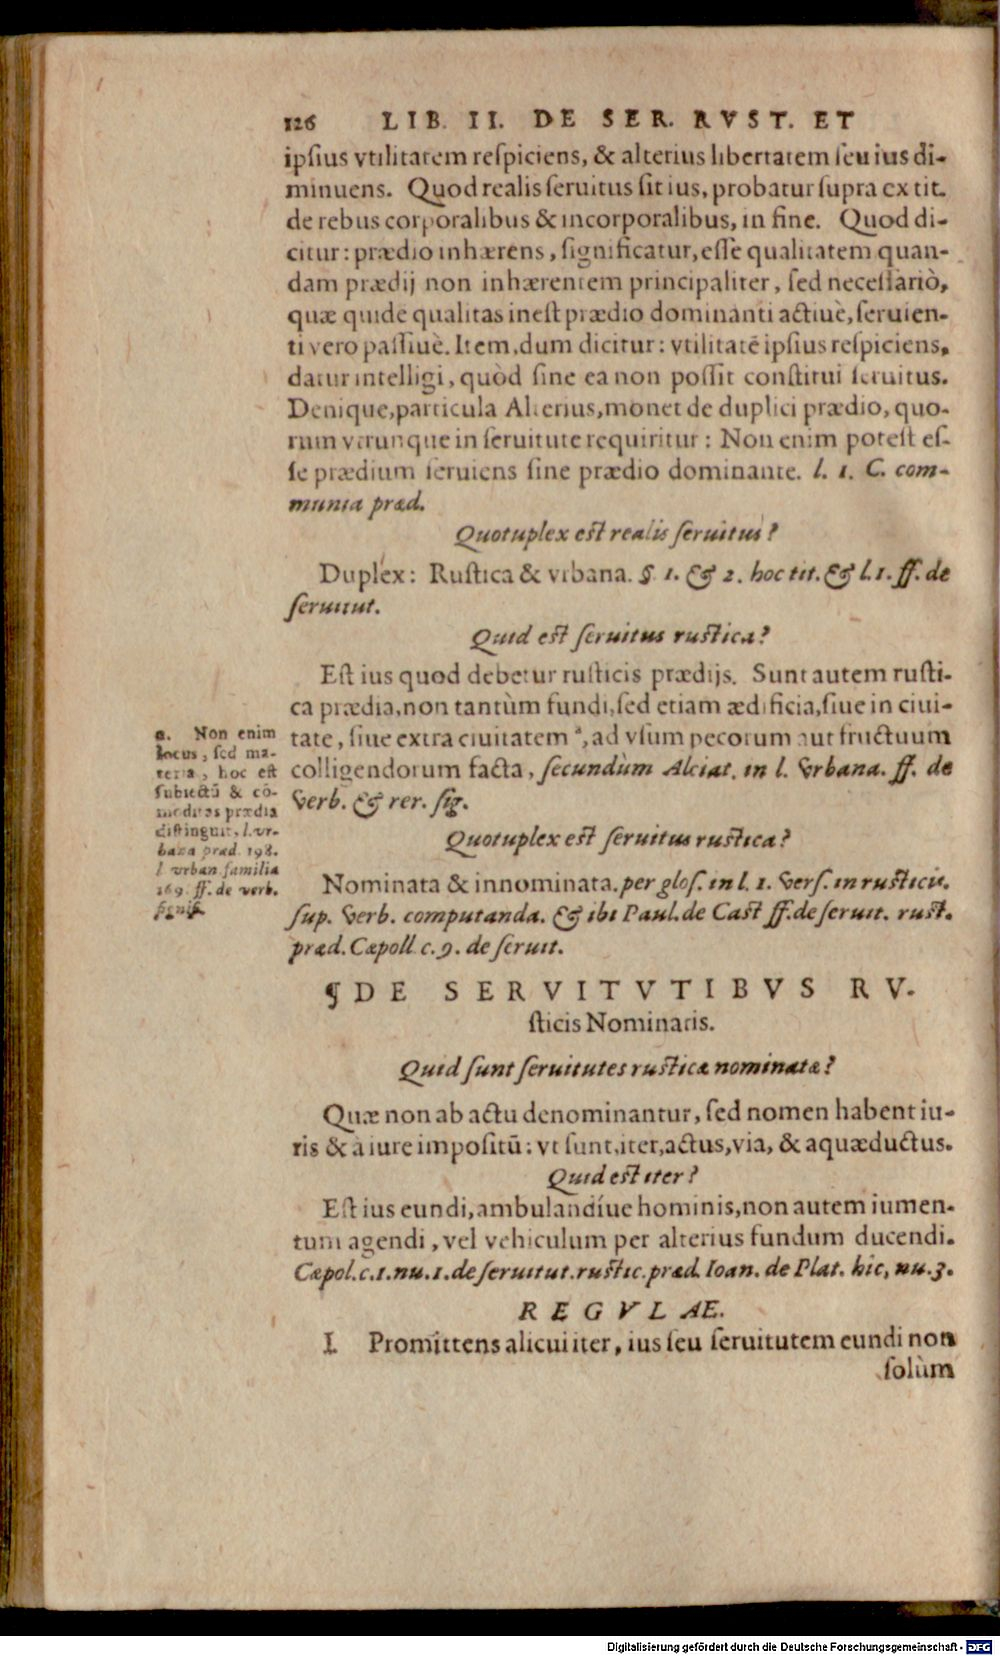 126 LIB. II. DE SER. RVST. ET
ipſius vtilitatem reſpiciens, & alterius libertatem ſeu ius di-
minuens. Quod realis ſeruitus ſit ius, probatur ſupra ex tit.
de rebus corporalibus & incorporalibus, in fine. Quod di-
citur: prædio inhærens, ſignificatur, eſſe qualitatem quan-
dam prædij non inhærentem principaliter, ſed neceſſariò,
quæ quidẽ qualitas ineſt prædio dominanti actiuè, ſeruien-
ti vero paſſiuè. Item, dum dicitur: vtilitatẽ ipſius reſpiciens,
datur intelligi, quòd ſine ea non poſſit conſtitui ſeruitus.
Denique, particula Alterius, monet de duplici prædio, quo-
rum vtrunque in ſeruitute requiritur: Non enim poteſt eſ-
ſe prædium ſeruiens ſine prædio dominante. l. 1. C. com-
munia præd.
Quotuplex eſt realis ſeruitus?
Duplex: Ruſtica & vrbana. §. 1. & 2. hoc tit. & l. 1. ff. de
ſeruitut.
Quid eſt ſeruitus ruſtica?
Eſt ius quod debetur ruſticis prædijs. Sunt autem ruſti-
ca prædia, non tantùm fundi, ſed etiam ædificia, ſiue in ciui-
tate, ſiue extra ciuitatem ª, ad vſum pecorum aut fructuum
colligendorum facta, ſecundùm Alciat. in l. Vrbana. ff. de
Verb. & rer. ſig.
a. Non enim
locus, ſed ma-
teria, hoc eſt
ſubiectũ & cõ-
moditas prædia
diſtinguit, l. vr-
bana præd. 198.
l. vrban. familia
169. ff. de verb.
ſignif.
Quotuplex eſt ſeruitus ruſtica?
Nominata & innominata. per gloſ. in l. 1. Verſ. in ruſticis.
ſup. Verb. computanda. & ibi Paul. de Caſt ff. de ſeruit. ruſt.
præd. Cæpoll. c. 9. de ſeruit.
¶ DE SERVITVTIBVS RV-
ſticis Nominatis.
Quid ſunt ſeruitutes ruſticæ nominatæ?
Quæ non ab actu denominantur, ſed nomen habent iu-
ris & à iure impoſitũ: vt ſunt, iter, actus, via, & aquæductus.
Quid eſt iter?
Eſt ius eundi, ambulandíue hominis, non autem iumen-
tum agendi, vel vehiculum per alterius fundum ducendi.
Cæpol. c. 1. nu. 1. de ſeruitut. ruſtic. præd. Ioan. de Plat. hic, nu. 3.
REGVLAE.
I. Promittens alicui iter, ius ſeu ſeruitutem eundi non
ſolùm
Digitalisierung gefördert durch die Deutsche Forschungsgemeinschaft - DFG